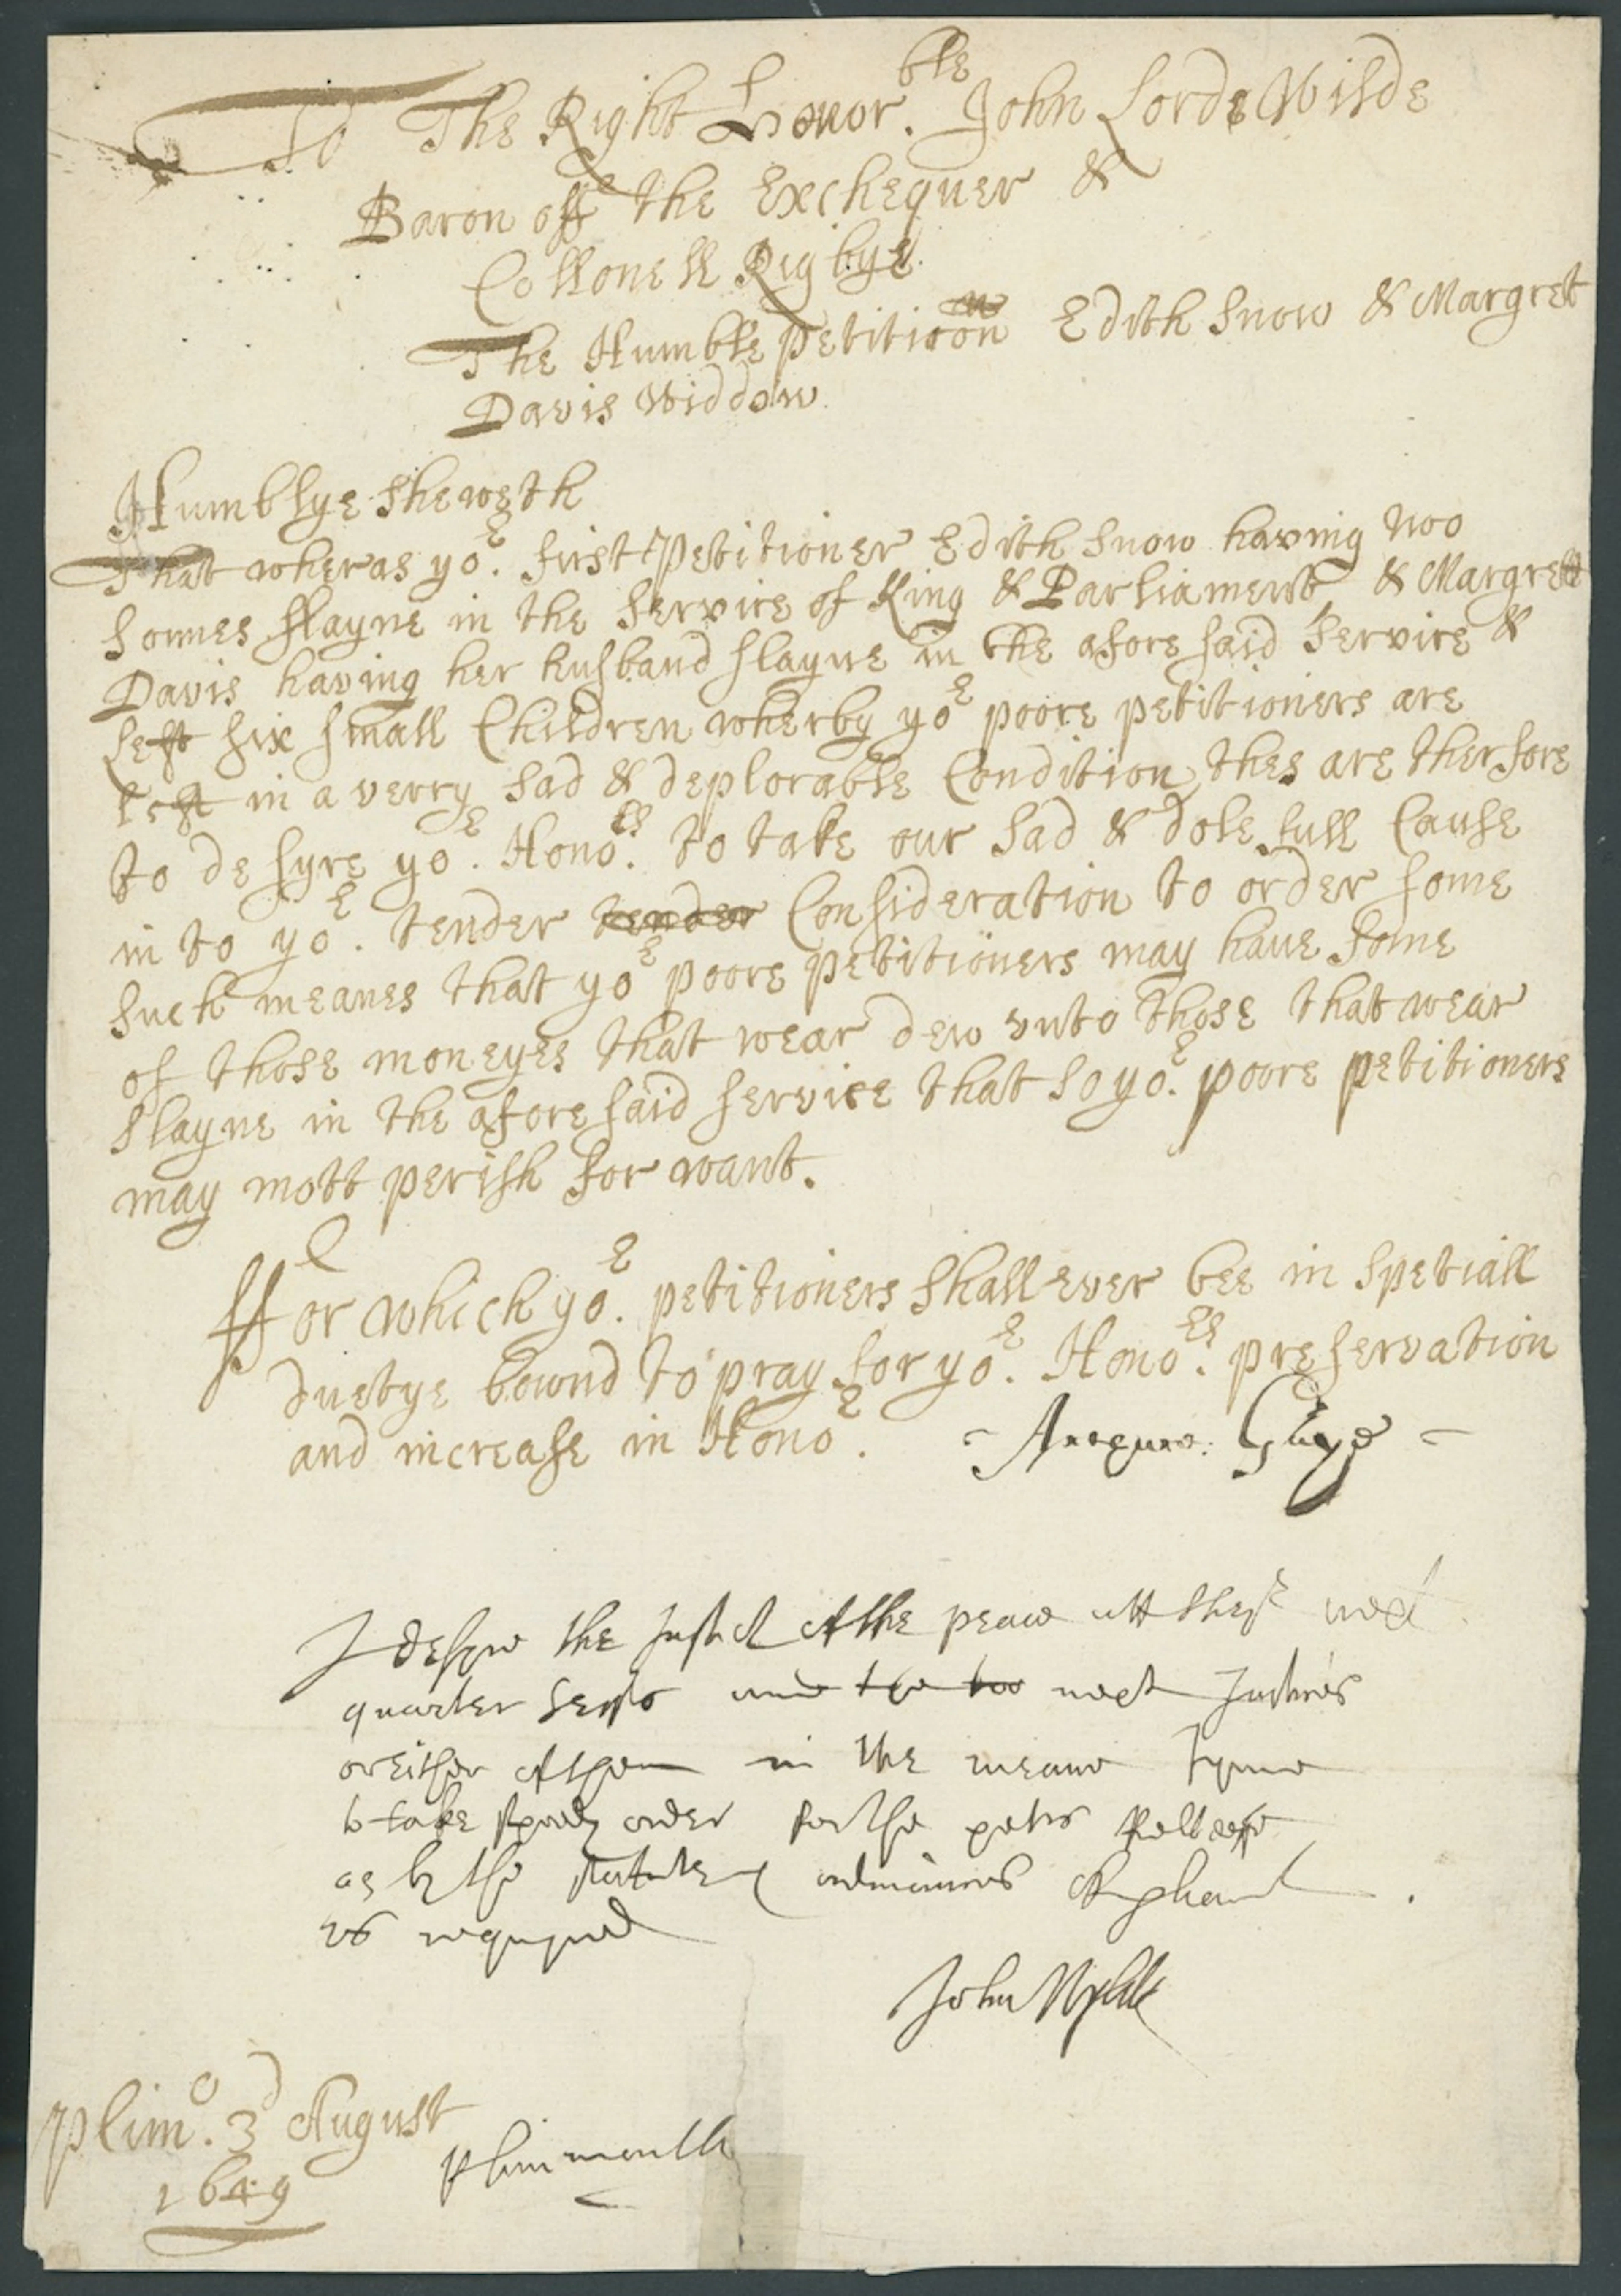 To The Right Honor.ble John Lorde Wilde
Baron off the Exchequer &
Collonell Rigbye.
The Humble petition Edith Snow & Margret
Davis Widdow.
Humblye sheweth
That wheras yor. first Petitioner Edith Snow having two
sonnes slayne in the service of King & Parliament & Margrett
Davis having her husband slayne in the afore said service &
left six small Children wherby yor poore petitioners are
left in a verry sad & deplorable Condition, thes are therfore
to desyre yor. Honors. to take our sad & dolefull Cause
in to yor. tender tender Consideration to order some
such meanes that yor poore petitioners may have some
of those moneyes that wear dew vnto those that wear
slayne in the afore said service that so yor. poore petitioners
may nott perish for want.
ffor which yor. petitioners shall ever bee in spetiall
duetye bownd to pray for yor. Honors. preservation
and increase in Honor.
I desyre the Justices of the peace att theyr next
quarter Sessions and the two next Justices
or either of them in the meane tyme
to take speedy order for the petrs relleefe
as by the statute & ordinances of Parliament
is requyred
John Wylde
Plimo. 3d August
1649
Plimmouth